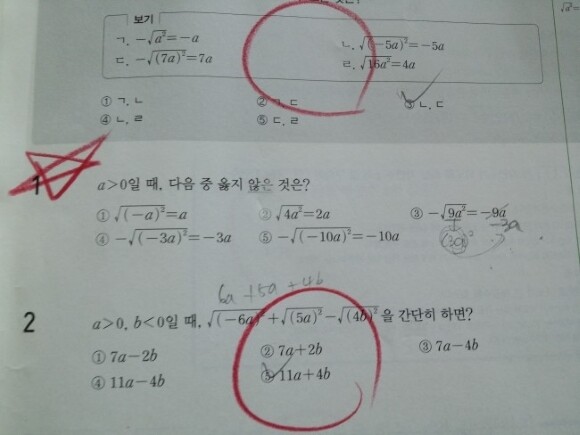 것은?
보기
ㄱ. -√a² = -a ㄴ. √(-5a)² = -5a
ㄷ. -√(7a)² = 7a ㄹ. √16a² = 4a
① ㄱ, ㄴ ② ㄱ, ㄷ ③ ㄴ, ㄷ
④ ㄴ, ㄹ ⑤ ㄷ, ㄹ
1 a>0일 때, 다음 중 옳지 않은 것은?
① √(-a)² = a ② √4a² = 2a ③ -√9a² = -9a
-3a
(3a)²
④ -√(-3a)² = -3a ⑤ -√(-10a)² = -10a
6a + 5a + 4b
2 a>0, b<0일 때, √(-6a)² + √(5a)² - √(4b)² 을 간단히 하면?
① 7a-2b ② 7a+2b ③ 7a-4b
④ 11a-4b ⑤ 11a+4b